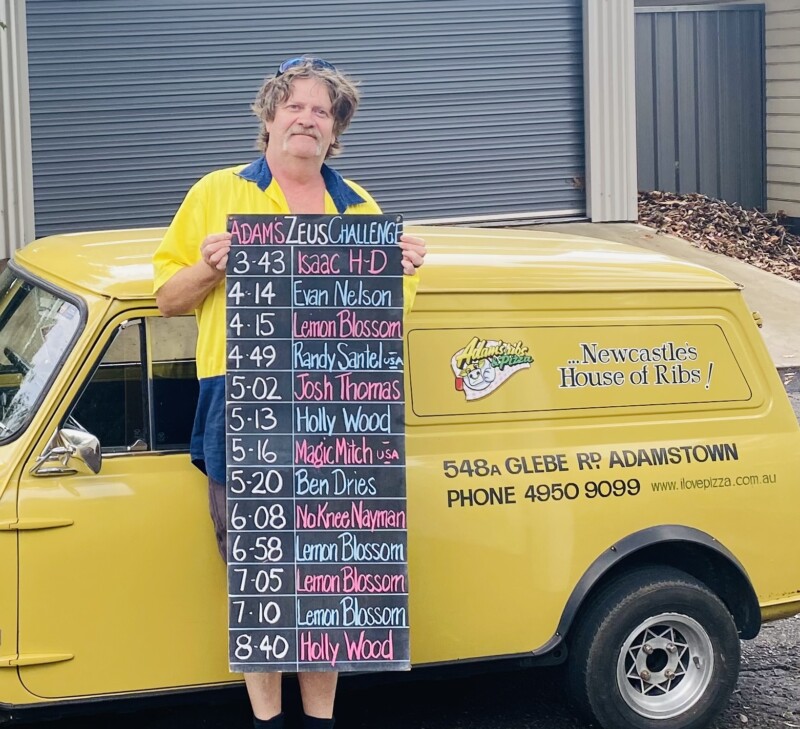 ADAM'S ZEUS CHALLENGE
3-43 Isaac H-D
4-14 Evan Nelson
4-15 Lemon Blossom
4-49 Randy Santel USA
5-02 Josh Thomas
5-13 Holly Wood
5-16 Magic Mitch USA
5-20 Ben Dries
6-08 No Knee Nayman
6-58 Lemon Blossom
7-05 Lemon Blossom
7-10 Lemon Blossom
8-40 Holly Wood
Adam's ribs
& Pizza
...Newcastle's
House of Ribs!
548A GLEBE RD. ADAMSTOWN
PHONE 4950 9099 www.ilovepizza.com.au